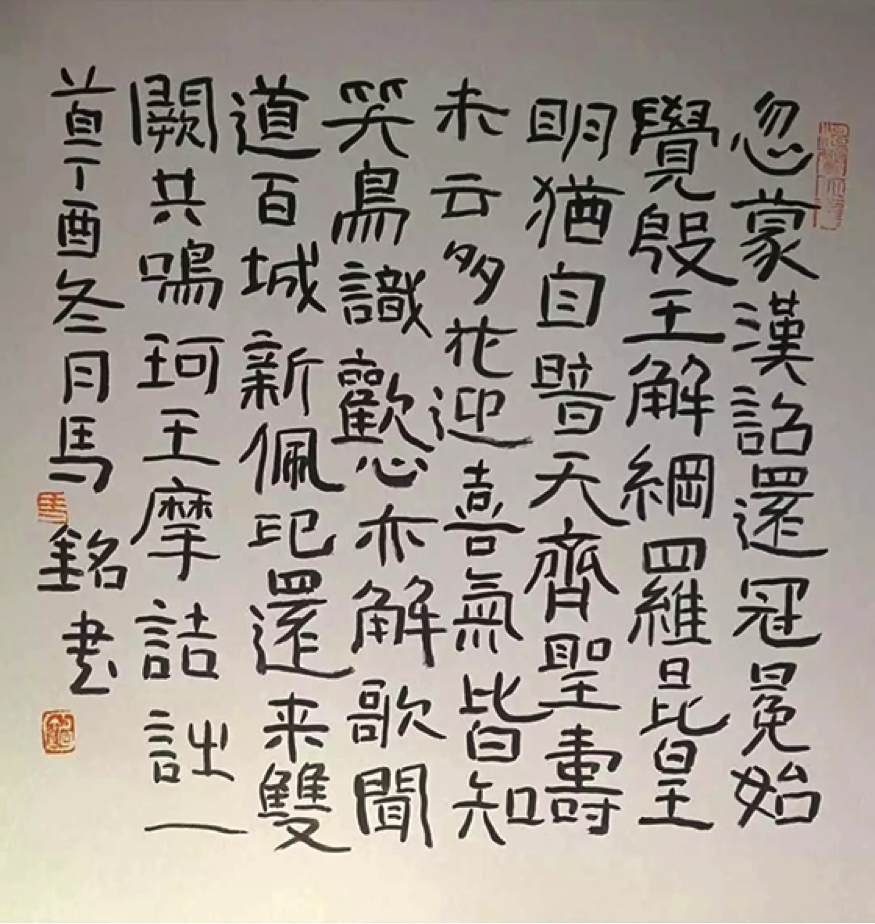 忽蒙漢詔還冠冕始
覺殷王解綱羅日比皇
明猶自暗天齊聖壽
未云多花迎喜氣皆知
笑鳥識歡心亦解歌聞
道百城新佩印還来雙
闕共鳴珂王摩詰詩一
首丁酉冬月馬銘書
馬
銘